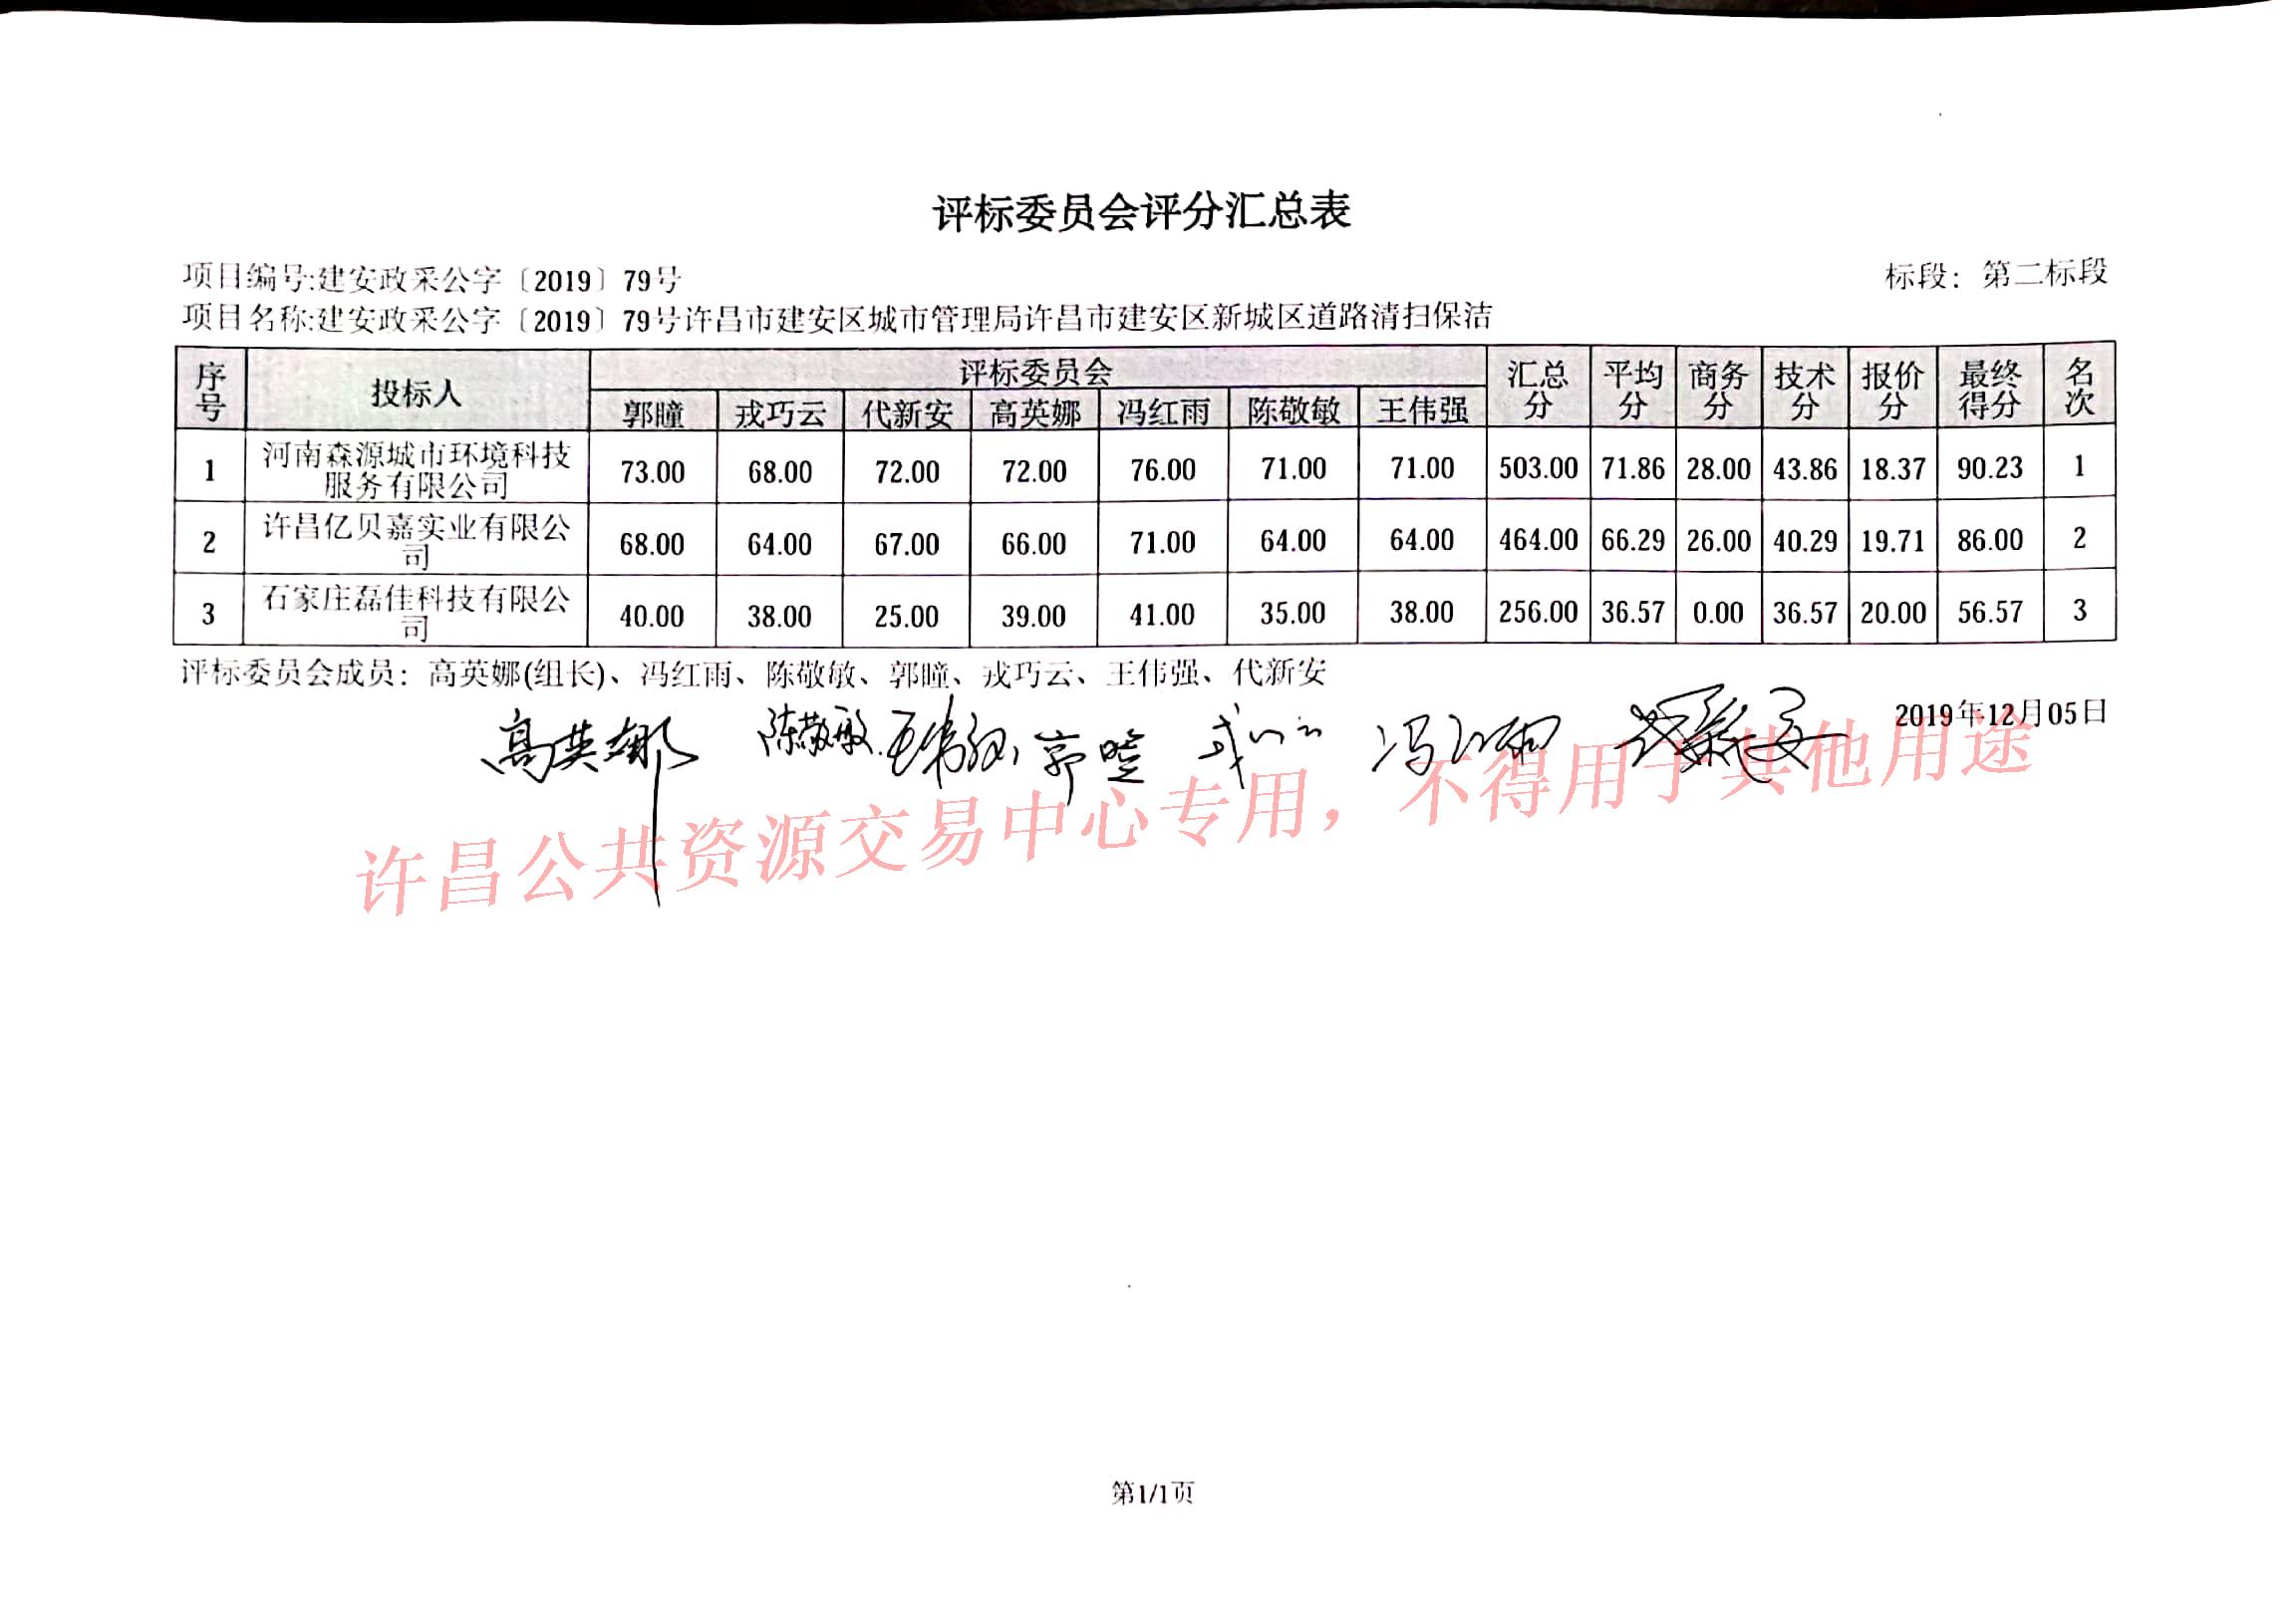 评标委员会评分汇总表
项目编号:建安政采公字〔2019〕79号 标段：第二标段
项目名称:建安政采公字〔2019〕79号许昌市建安区城市管理局许昌市建安区新城区道路清扫保洁
序号 投标人 评标委员会 汇总分 平均分 商务分 技术分 报价分 最终得分 名次
郭瞳 戎巧云 代新安 高英娜 冯红雨 陈敬敏 王伟强
1 河南森源城市环境科技服务有限公司 73.00 68.00 72.00 72.00 76.00 71.00 71.00 503.00 71.86 28.00 43.86 18.37 90.23 1
2 许昌亿贝嘉实业有限公司 68.00 64.00 67.00 66.00 71.00 64.00 64.00 464.00 66.29 26.00 40.29 19.71 86.00 2
3 石家庄磊佳科技有限公司 40.00 38.00 25.00 39.00 41.00 35.00 38.00 256.00 36.57 0.00 36.57 20.00 56.57 3
评标委员会成员：高英娜(组长)、冯红雨、陈敬敏、郭瞳、戎巧云、王伟强、代新安
2019年12月05日
高英娜 陈敬敏 王伟强 郭瞳 戎巧云 冯红雨 代新安
许昌公共资源交易中心专用，不得用于其他用途
第1/1页